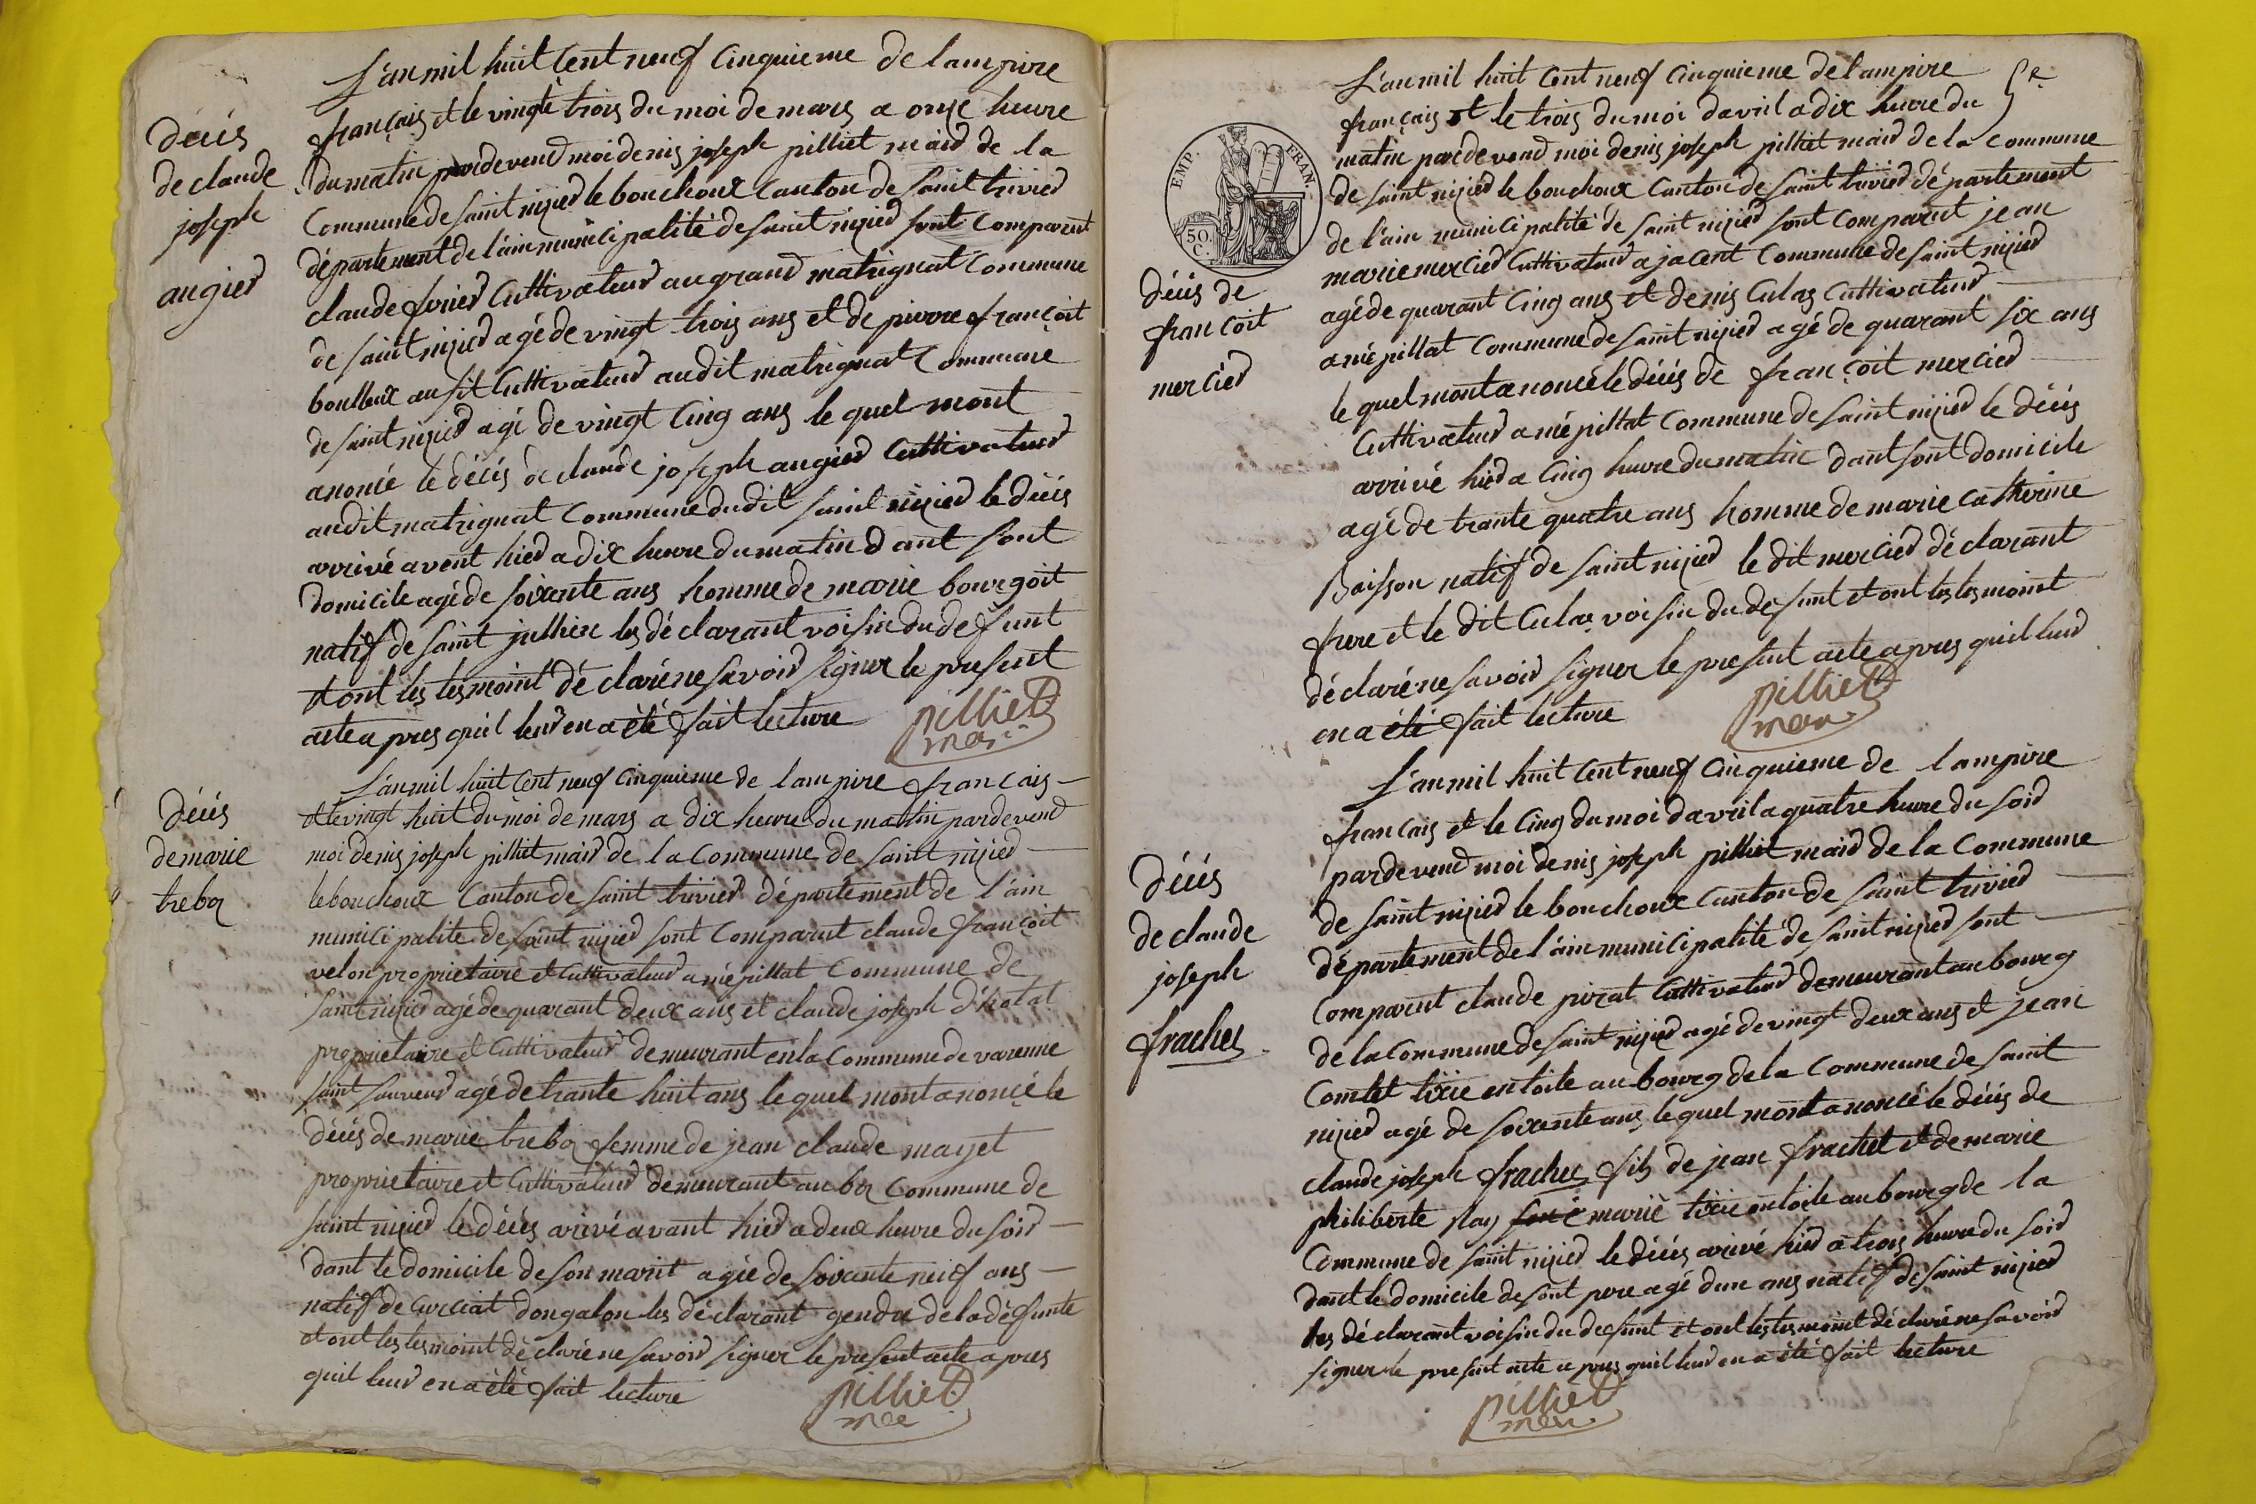 L'an mil huit Cent neuf Cinquieme de lampire
français et le vingte trois du moi de mars a onze heure
du matin pardevend moi denis joseph pilliet maird de la
Commune de saint nizied le bouchoux Canton de saint trivied
département de l'ain municipalité de saint nizied sont Comparent
claude foried Cultivateurd au grand matrignat Commune
de saint nizied agé de vingt trois ans et de pierre françoit
boulleux ausit Cultivateurd audit matrignat Commune
de saint nizied agé de vingt Cinq ans le quel mont
anoncé le décés de claude joseph augied Cultivateurd
audit matrignat Commune dudit saint nizied le décés
arrivé avent hied a dix heure du matin dant sont
domicile agé de soixente ans homme de marie bourgoit
natif de saint jullien les déclarant voisin du defunt
et ont les tesmoint déclaré ne savoird signer le present
acte apres quil leurd en a été fait lecture
pilliet
mair
décés
de claude
joseph
augied
L'an mil huit Cent neuf Cinquieme de lampire français
et le vingt huit du moi de mars a dix heure du matin pardevend
moi denis joseph pilliet maird de la Commune de saint nizied
le bouchoux Canton de saint trivied département de l'ain
municipalité de saint nizied sont Comparent claude françoit
velon proprietaire et Cultivateurd a mépillat Commune de
saint nizied agé de quarant deux ans et claude joseph
proprietaire et Cultivateurd demeurant en la Commune de varenne
saint sauveurd agé de trante huit ans le quel mont anoncé le
décés de marie treboz femme de jean claude mayet
proprietaire et Cultivateurd demeurant au boz Commune de
saint nizied le décés arivé avant hied a deux heure du soird
dant le domicile de son marit agée de soixante neuf ans
natif de Curciat dongalon les déclarant gendre de la défunte
et ont les tesmoint déclaré ne savoird signer le present acte apres
quil leurd en a été fait lecture
pilliet
décés
de marie
treboz
5e
L'an mil huit Cent neuf Cinquieme de lampire
français et le trois du moi davril a dix heure du
matin pardevend moi denis joseph pilliet maird de la Commune
de saint nizied le bouchoux Canton de saint trivied département
de l'ain municipalité de saint nizied sont Comparent jean
marie mercied Cultivateurd a jacent Commune de saint nizied
agé de quarant Cinq ans et denis Culas Cultivateurd
a mépillat Commune de saint nizied agé de quarant six ans
le quel mont anoncé le décés de françoit mercied
Cultivateurd a mépillat Commune de saint nizied le décés
arrivé hied a Cinq heure du matin dant sont domicile
agé de trante quatre ans homme de marie Catherine
Boisson natif de saint nizied le dit mercied déclarant
frere et le dit Culas voisin du défunt et ont les tesmoint
déclaré ne savoird signer le present acte apres quil leurd
en a été fait lecture
pilliet
mair
EMP. FRAN.
50
C.
décés de
françoit
mercied
L'an mil huit Cent neuf Cinquieme de lampire
français et le Cinq du moi davril a quatre heure du soird
pardevend moi denis joseph pilliet maird de la Commune
de saint nizied le bouchoux Canton de saint trivied
département de l'ain municipalité de saint nizied sont
Comparent claude pirat Cultivateurd demeurant au bourg
de la Commune de saint nizied agé de vingt deux ans et jean
Comtet tixie en toile au bourg de la Commune de saint
nizied agé de soixente ans le quel mont anoncé le décés de
claude joseph frachet fils de jean frachet et de marie
philiberte Ray marié tixie en toile au bourg de la
Commune de saint nizied le décés arivé hied a trois heure du soird
dant le domicile de sont pere agé dun ans natif de saint nizied
les déclarant voisin du defunt et ont les tesmoint déclaré ne savoird
signer le present acte apres quil leurd en a été fait lecture
pilliet
mair
décés
de claude
joseph
frachet